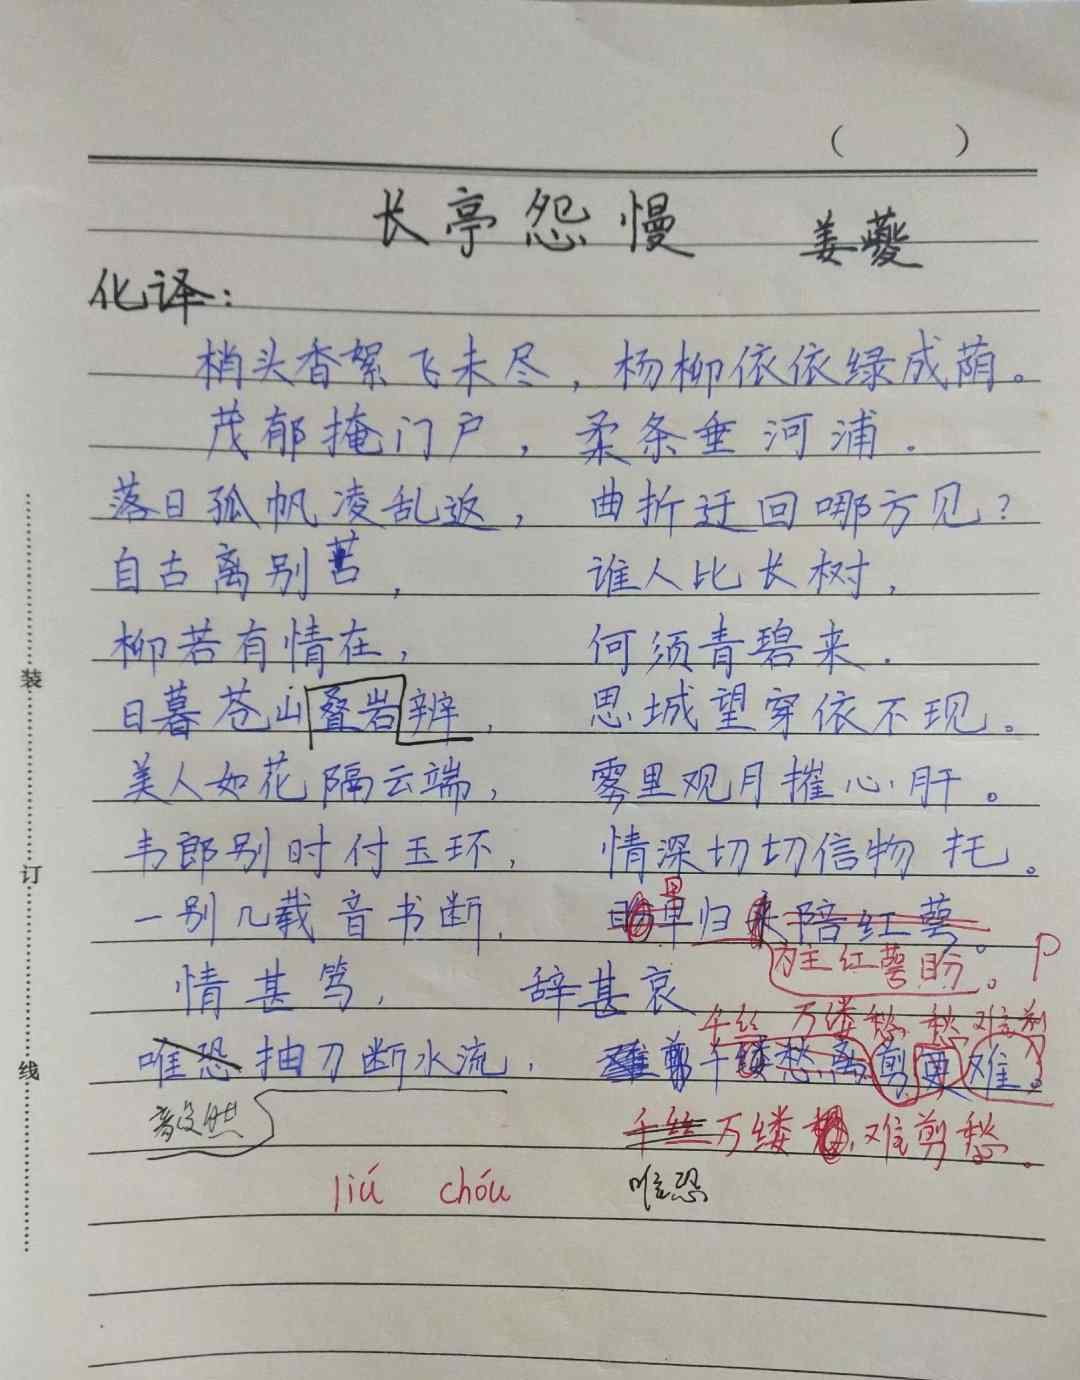 ( )
长亭怨慢 姜夔
化译:
梢头香絮飞未尽，杨柳依依绿成荫。
茂郁掩门户，柔条垂河浦.
落日孤帆凌乱返，曲折迂回哪方见?
自古离别苦，谁人比长树，
柳若有情在，何须青碧来.
日暮苍山叠岩辨，思城望穿依不现。
美人如花隔云端，雾里观月摧心肝。
韦郎别时付玉环，情深切切信物托。
一别几载音书断，早归陪红萼。
早
为主红萼盼。
情甚笃，辞甚哀
千丝万缕愁愁难剪
唯恐抽刀断水流，千缕愁离剪更难。
千丝万缕，难剪愁。
liú chóu
唯恐
装
订
线